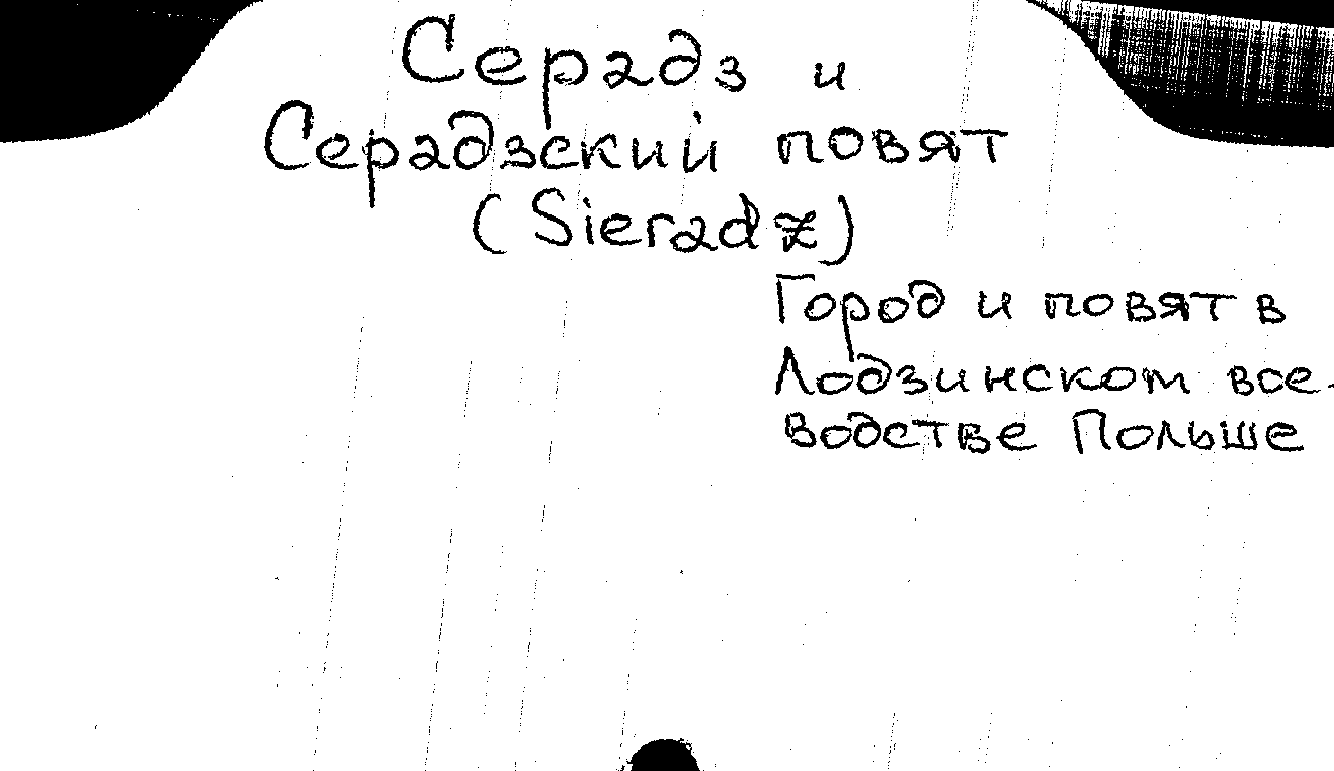 Серадз и
Серадзский повят
(Sieradz)
Город и повят в
Лодзинском все-
водстве Польше